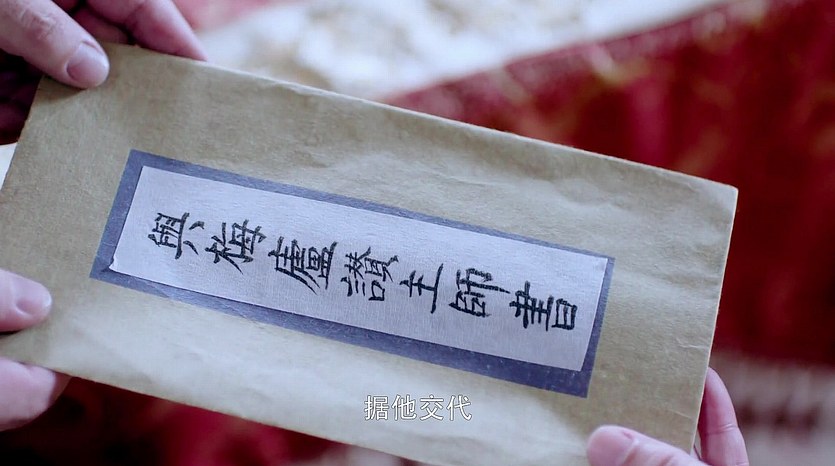 與梅廬讃主師書
据他交代